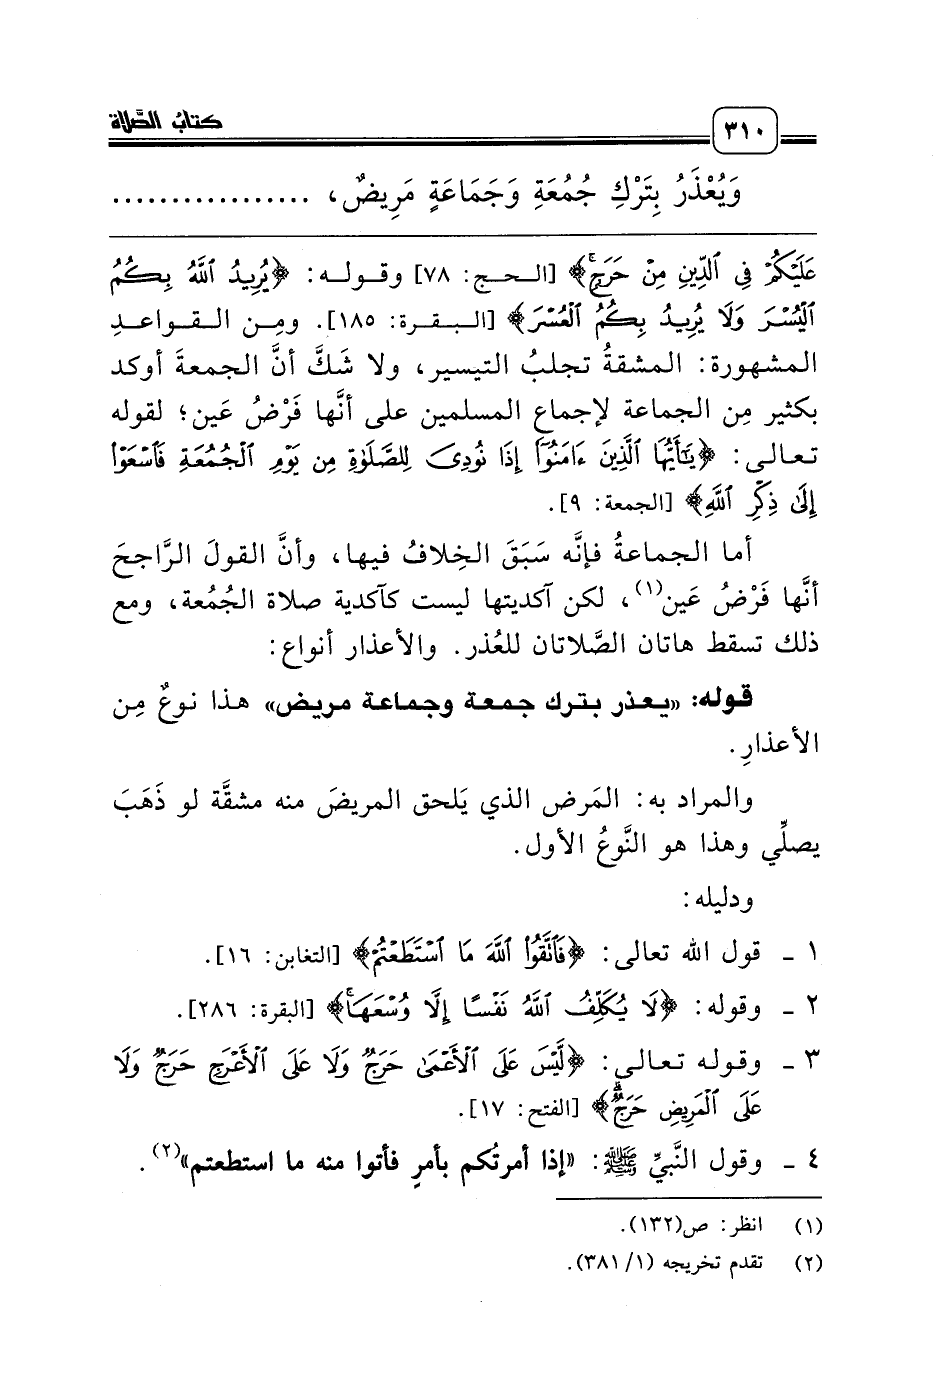 ٣١٠
كتابُ الصَّلاة
وَيُعْذَرُ بِتَرْكِ جُمُعَةِ وَجَمَاعَةٍ مَرِيضٌ، .................
عَلَيْكُمْ فِي ٱلدِّينِ مِنْ حَرَجٍۚ﴾ [الحج: ٧٨] وقوله: ﴿يُرِيدُ ٱللَّهُ بِكُمُ
ٱلْيُسْرَ وَلَا يُرِيدُ بِكُمُ ٱلْعُسْرَ﴾ [البقرة: ١٨٥]. ومِن القواعدِ
المشهورة: المشقةُ تجلبُ التيسير، ولا شَكَّ أنَّ الجمعةَ أوكد
بكثير مِن الجماعة لإجماع المسلمين على أنَّها فَرْضُ عَين؛ لقوله
تعالى: ﴿يَٰٓأَيُّهَا ٱلَّذِينَ ءَامَنُوٓا۟ إِذَا نُودِىَ لِلصَّلَوٰةِ مِن يَوْمِ ٱلْجُمُعَةِ فَٱسْعَوْا۟
إِلَىٰ ذِكْرِ ٱللَّهِ﴾ [الجمعة: ٩].
أما الجماعةُ فإنَّه سَبَقَ الخِلافُ فيها، وأنَّ القولَ الرَّاجحَ
أنَّها فَرْضُ عَين(١)، لكن آكديتها ليست كآكدية صلاة الجُمُعة، ومع
ذلك تسقط هاتان الصَّلاتان للعُذر. والأعذار أنواع:
قوله: «يعذر بترك جمعة وجماعة مريض» هذا نوعٌ مِن
الأعذارِ.
والمراد به: المَرض الذي يَلحق المريضَ منه مشقَّة لو ذَهَبَ
يصلِّي وهذا هو النَّوعُ الأول.
ودليله:
١ ـ قول الله تعالى: ﴿فَٱتَّقُوا۟ ٱللَّهَ مَا ٱسْتَطَعْتُمْ﴾ [التغابن: ١٦].
٢ ـ وقوله: ﴿لَا يُكَلِّفُ ٱللَّهُ نَفْسًا إِلَّا وُسْعَهَاۚ﴾ [البقرة: ٢٨٦].
٣ ـ وقوله تعالى: ﴿لَّيْسَ عَلَى ٱلْأَعْمَىٰ حَرَجٌ وَلَا عَلَى ٱلْأَعْرَجِ حَرَجٌ وَلَا
عَلَى ٱلْمَرِيضِ حَرَجٌۗ﴾ [الفتح: ١٧].
٤ ـ وقول النَّبيِّ ﷺ: «إذا أمرتُكم بأمرٍ فأتوا منه ما استطعتم»(٢).
(١) انظر: ص(١٣٢).
(٢) تقدم تخريجه (١/ ٣٨١).